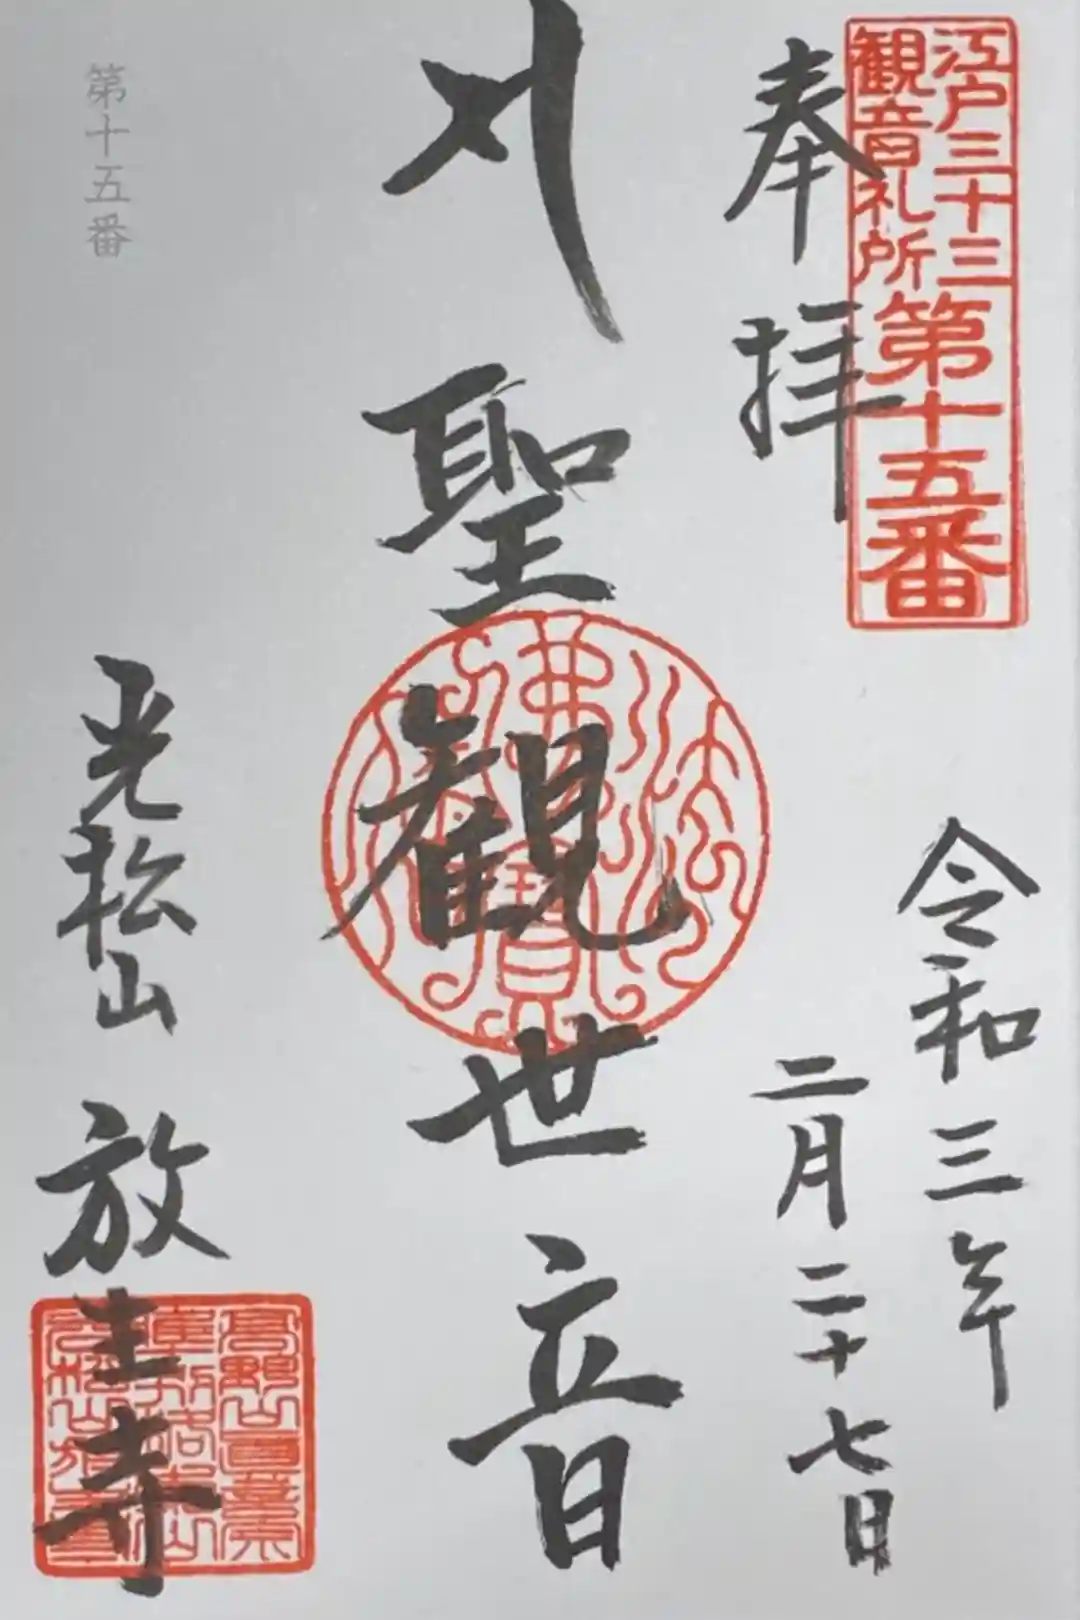 江戸三十三
観音札所
第十五番
奉拝
令和三年
二月二十七日
聖観世音
第十五番
光松山 放生寺